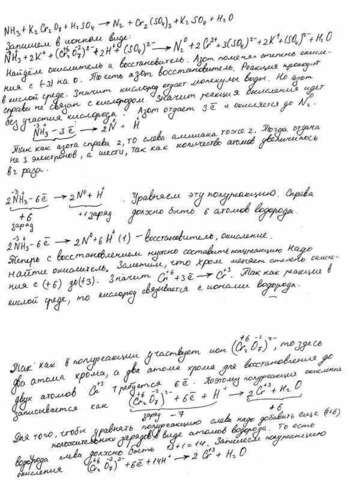 NH₃ + K₂Cr₂O₇ + H₂SO₄ → N₂ + Cr₂(SO₄)₃ + K₂SO₄ + H₂O
Запишем в ионном виде:
NH₃ + 2K⁺ + (Cr₂O₇)²⁻ + 2H⁺ + (SO₄)²⁻ → N₂⁰ + 2Cr³⁺ + 3(SO₄)²⁻ + 2K⁺ + (SO₄)²⁻ + H₂O
Найдём окислитель и восстановитель. Азот поменял степень окисле-
ния с (-3) на 0. То есть азот восстановитель. Реакция проходит
в кислой среде. Значит кислород отдает молекуле воды. Но азот
справа не связан с кислородом. Значит реакция окисления идет
без участия кислорода. Азот отдает 3ē и окисляется до N₂.
NH₃ - 3ē → 2N + H
Так как азота справа 2, то слева аммиака тоже 2. Тогда отдача
не 3 электронов, а шести, так как количество атомов увеличилось
в 2 раза.
2NH₃ - 6ē → 2N⁰ + H Уравняем эту полуреакцию. Справа
+6 заряд +1 заряд должно быть 6 атомов водорода.
2NH₃ - 6ē → 2N⁰ + 6H (1) - восстановитель, окисление.
Теперь с восстановлением нужно составить полуреакцию надо
найти окислитель. Заметим, что хром меняет степень окисле-
ния с (+6) до (+3). Значит Cr⁺⁶ + 3ē → Cr⁺³. Так как реакция в
кислой среде, то кислород связывается с ионами водорода.
Так как в полуреакции участвует ион (Cr₂O₇)²⁻, то здесь
два атома хрома, а два атома хрома для восстановления до
двух атомов Cr⁺³ требуется 6ē. Поэтому полуреакция окисления
записывается как (Cr₂O₇)²⁻ + 6ē + H⁺ → 2Cr + H₂O
заряд -7 +6
Для того, чтобы уравнять полуреакцию слева надо добавить еще (+13)
положительных зарядов в виде атомов водорода. То есть
водорода слева должно быть 13+1=14. Запишем полуреакцию
окисления (Cr₂O₇)²⁻ + 6ē + 14H⁺ → 2Cr + H₂O